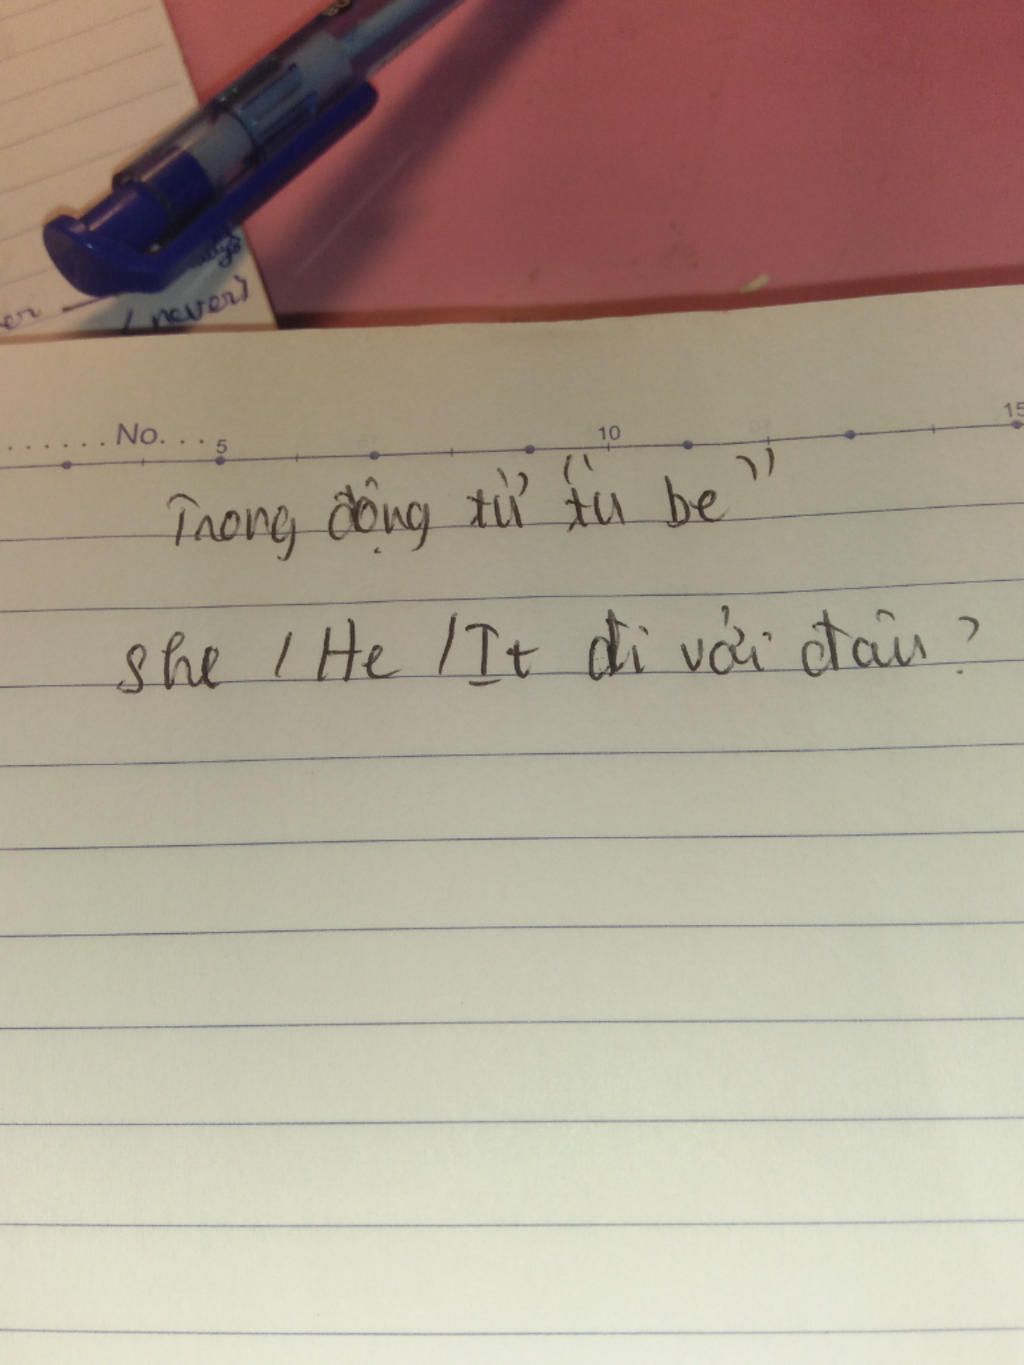 (never)
No. . . 5 10 15
Trong động từ "tu be"
she / He / It đi với đâu?